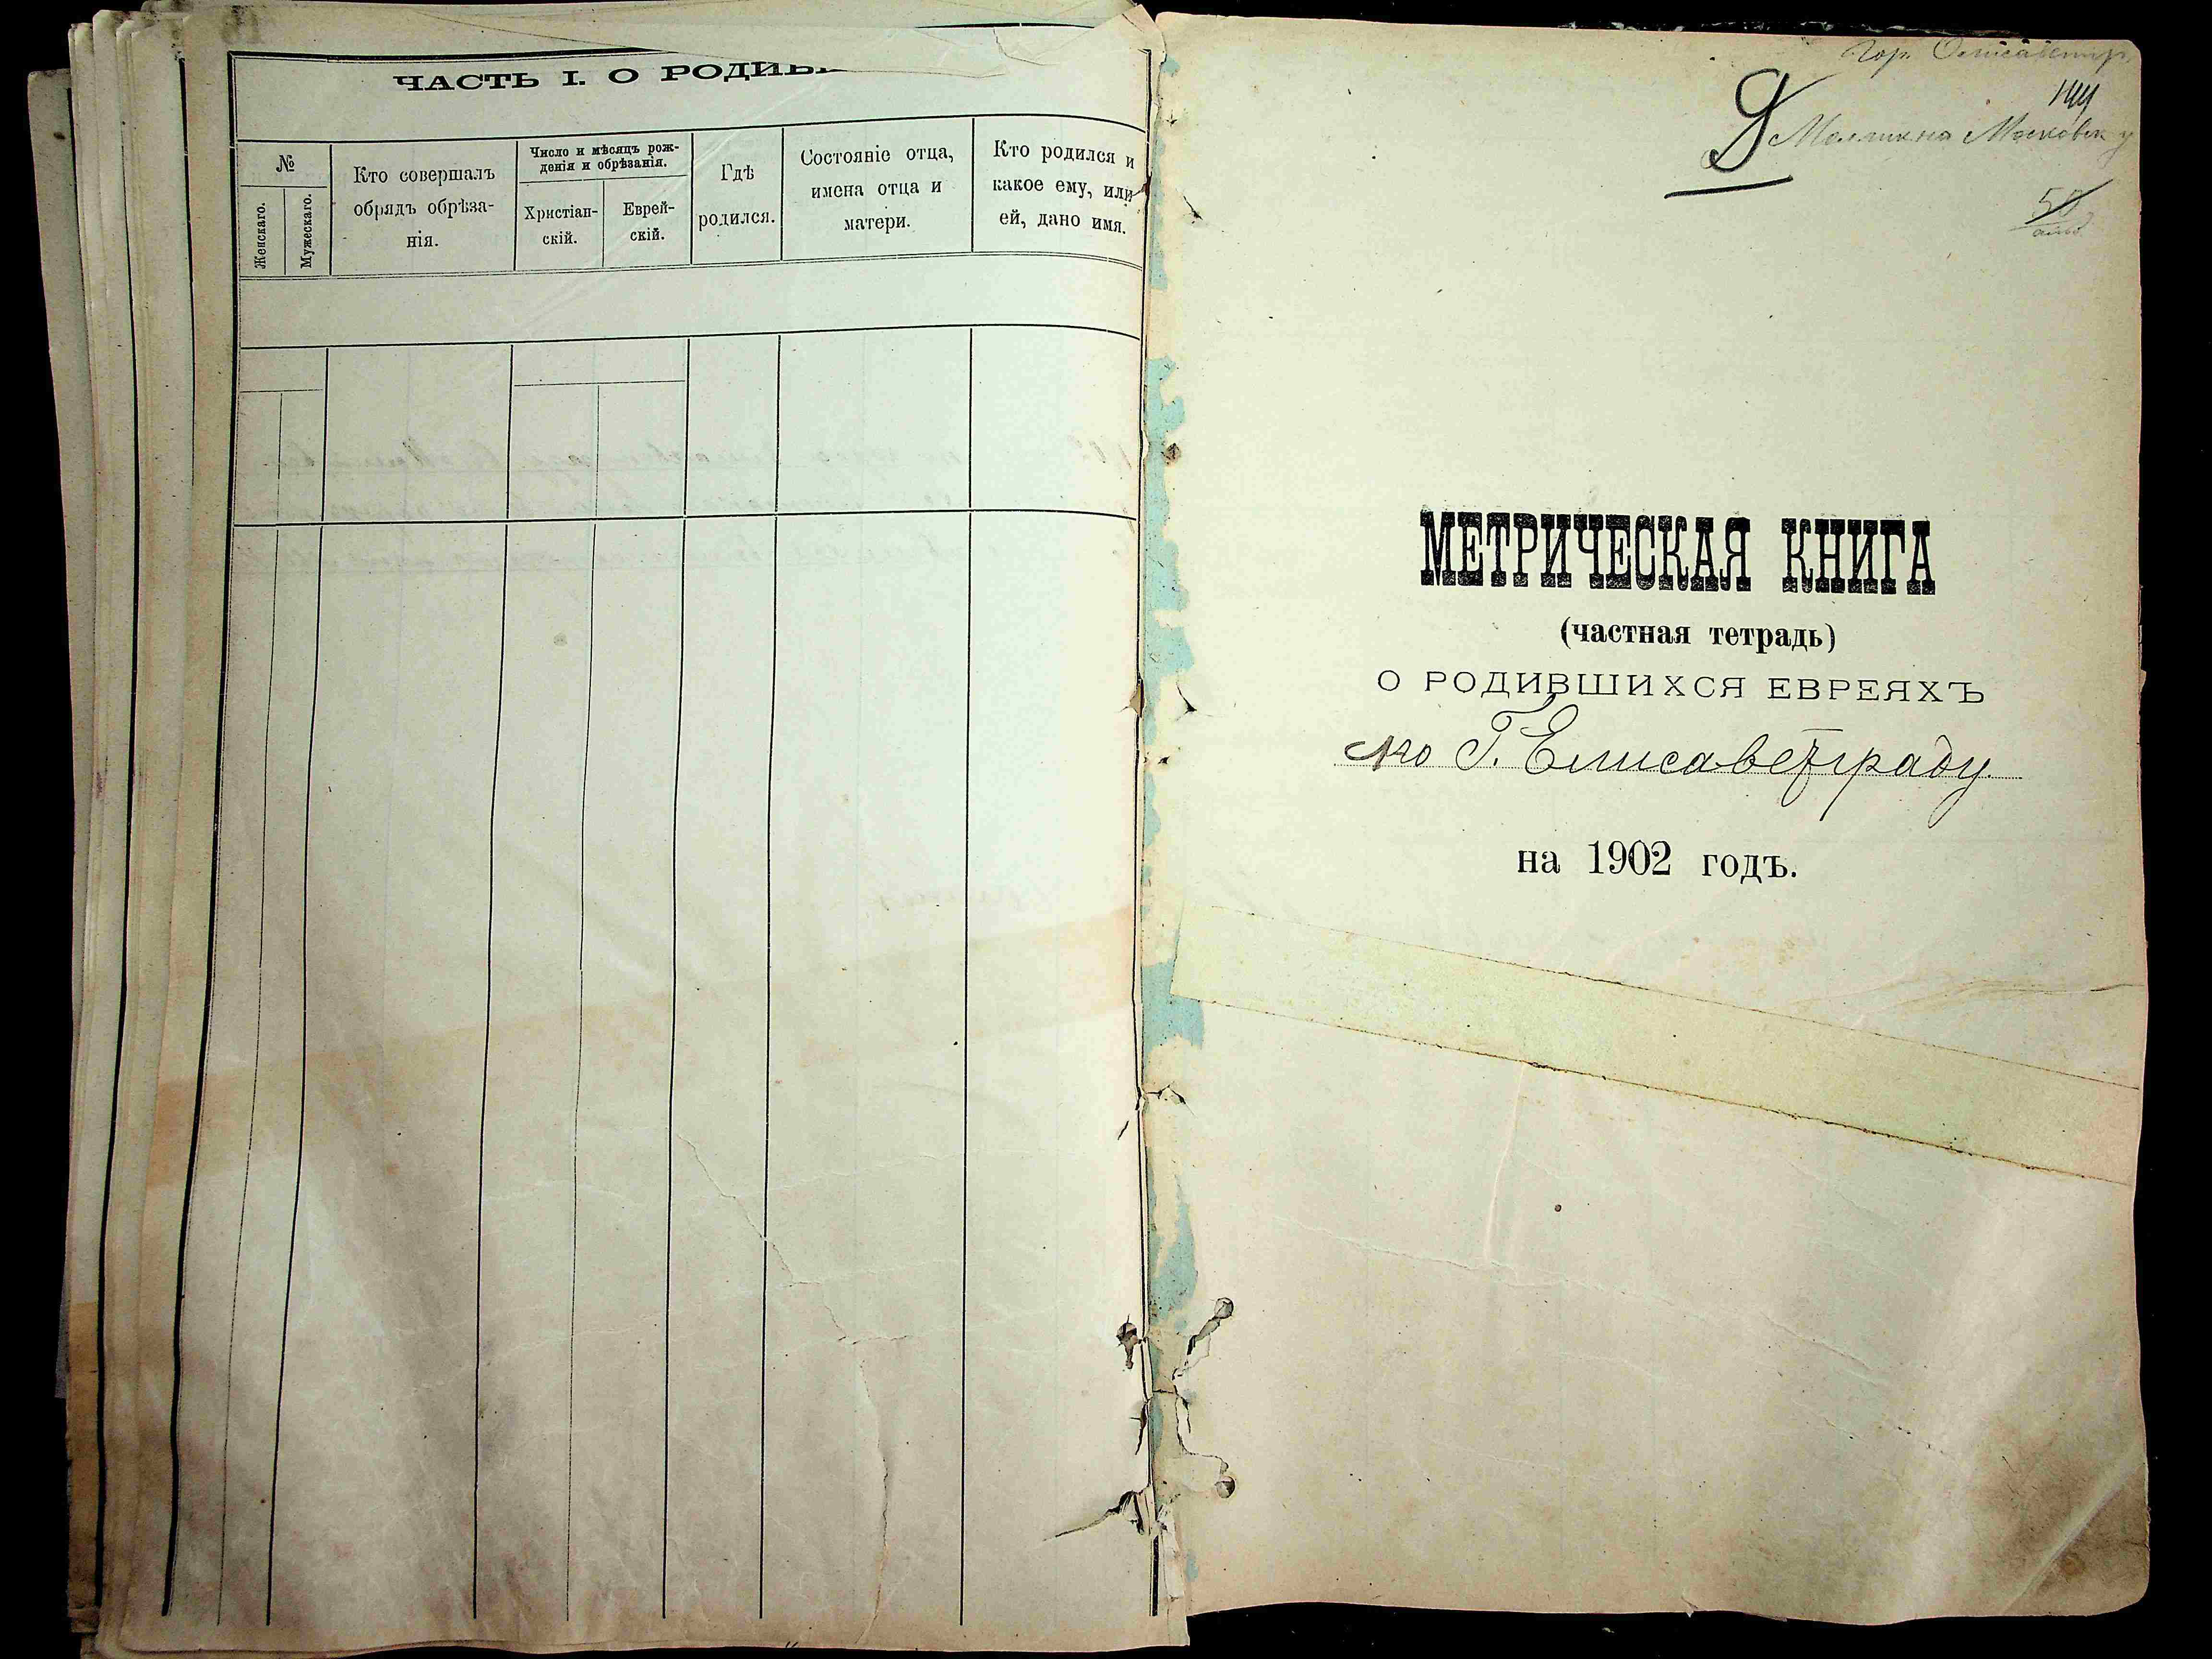 ЧАСТЬ I. О РОДИВ
№
Женскаго.
Мужескаго.
Кто совершалъ
обрядъ обрѣза-
нія.
Число и мѣсяцъ рож-
денія и обрѣзанія.
Христіан-
скій.
Еврей-
скій.
Гдѣ
родился.
Состояніе отца,
имена отца и
матери.
Кто родился и
какое ему, или
ей, дано имя.
Гор.
144
50
МЕТРИЧЕСКАЯ КНИГА
(частная тетрадь)
О РОДИВШИХСЯ ЕВРЕЯХЪ
по Г. Елисаветграду
на 1902 годъ.